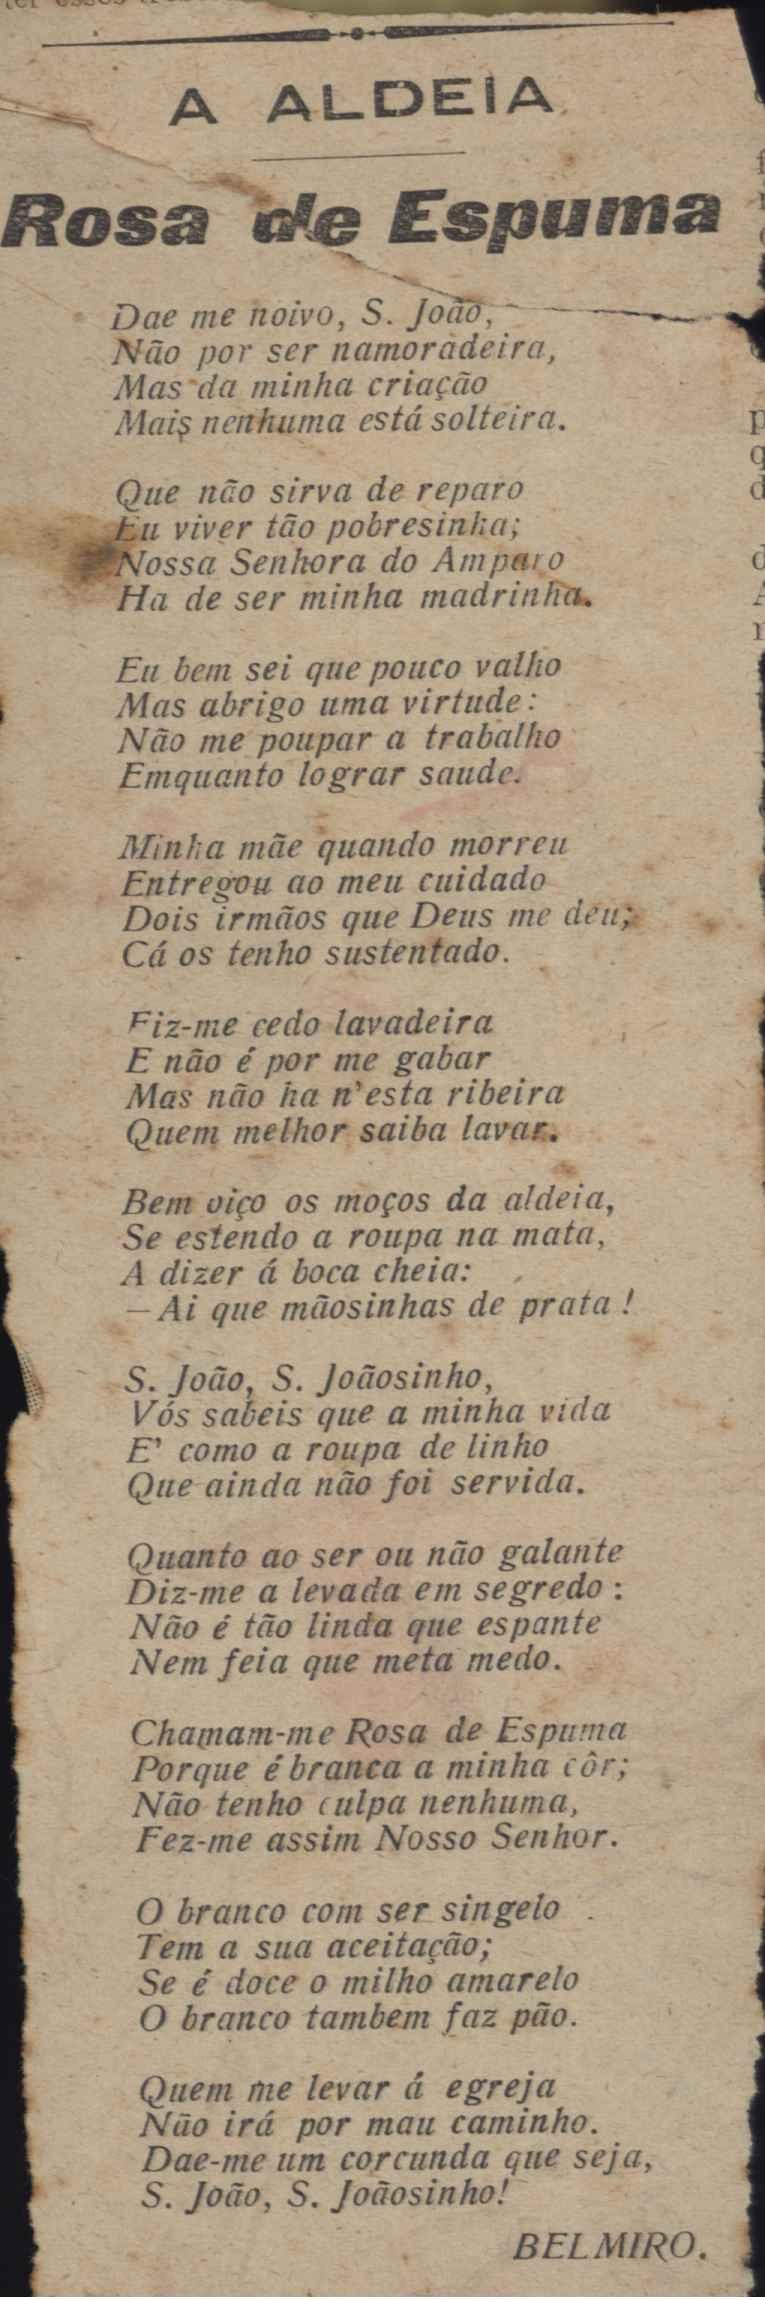 A ALDEIA
Rosa de Espuma
Dae me noivo, S. João,
Não por ser namoradeira,
Mas da minha criação
Mais nenhuma está solteira.
Que não sirva de reparo
Eu viver tão pobresinha;
Nossa Senhora do Amparo
Ha de ser minha madrinha.
Eu bem sei que pouco valho
Mas abrigo uma virtude:
Não me poupar a trabalho
Emquanto lograr saude.
Minha mãe quando morreu
Entregou ao meu cuidado
Dois irmãos que Deus me deu;
Cá os tenho sustentado.
Fiz-me cedo lavadeira
E não é por me gabar
Mas não ha n'esta ribeira
Quem melhor saiba lavar.
Bem oiço os moços da aldeia,
Se estendo a roupa na mata,
A dizer á boca cheia:
—Ai que mãosinhas de prata!
S. João, S. Joãosinho,
Vós sabeis que a minha vida
E' como a roupa de linho
Que ainda não foi servida.
Quanto ao ser ou não galante
Diz-me a levada em segredo:
Não é tão linda que espante
Nem feia que meta medo.
Chamam-me Rosa de Espuma
Porque é branca a minha côr;
Não tenho culpa nenhuma,
Fez-me assim Nosso Senhor.
O branco com ser singelo
Tem a sua aceitação;
Se é doce o milho amarelo
O branco tambem faz pão.
Quem me levar á egreja
Não irá por mau caminho.
Dae-me um corcunda que seja,
S. João, S. Joãosinho!
BELMIRO.